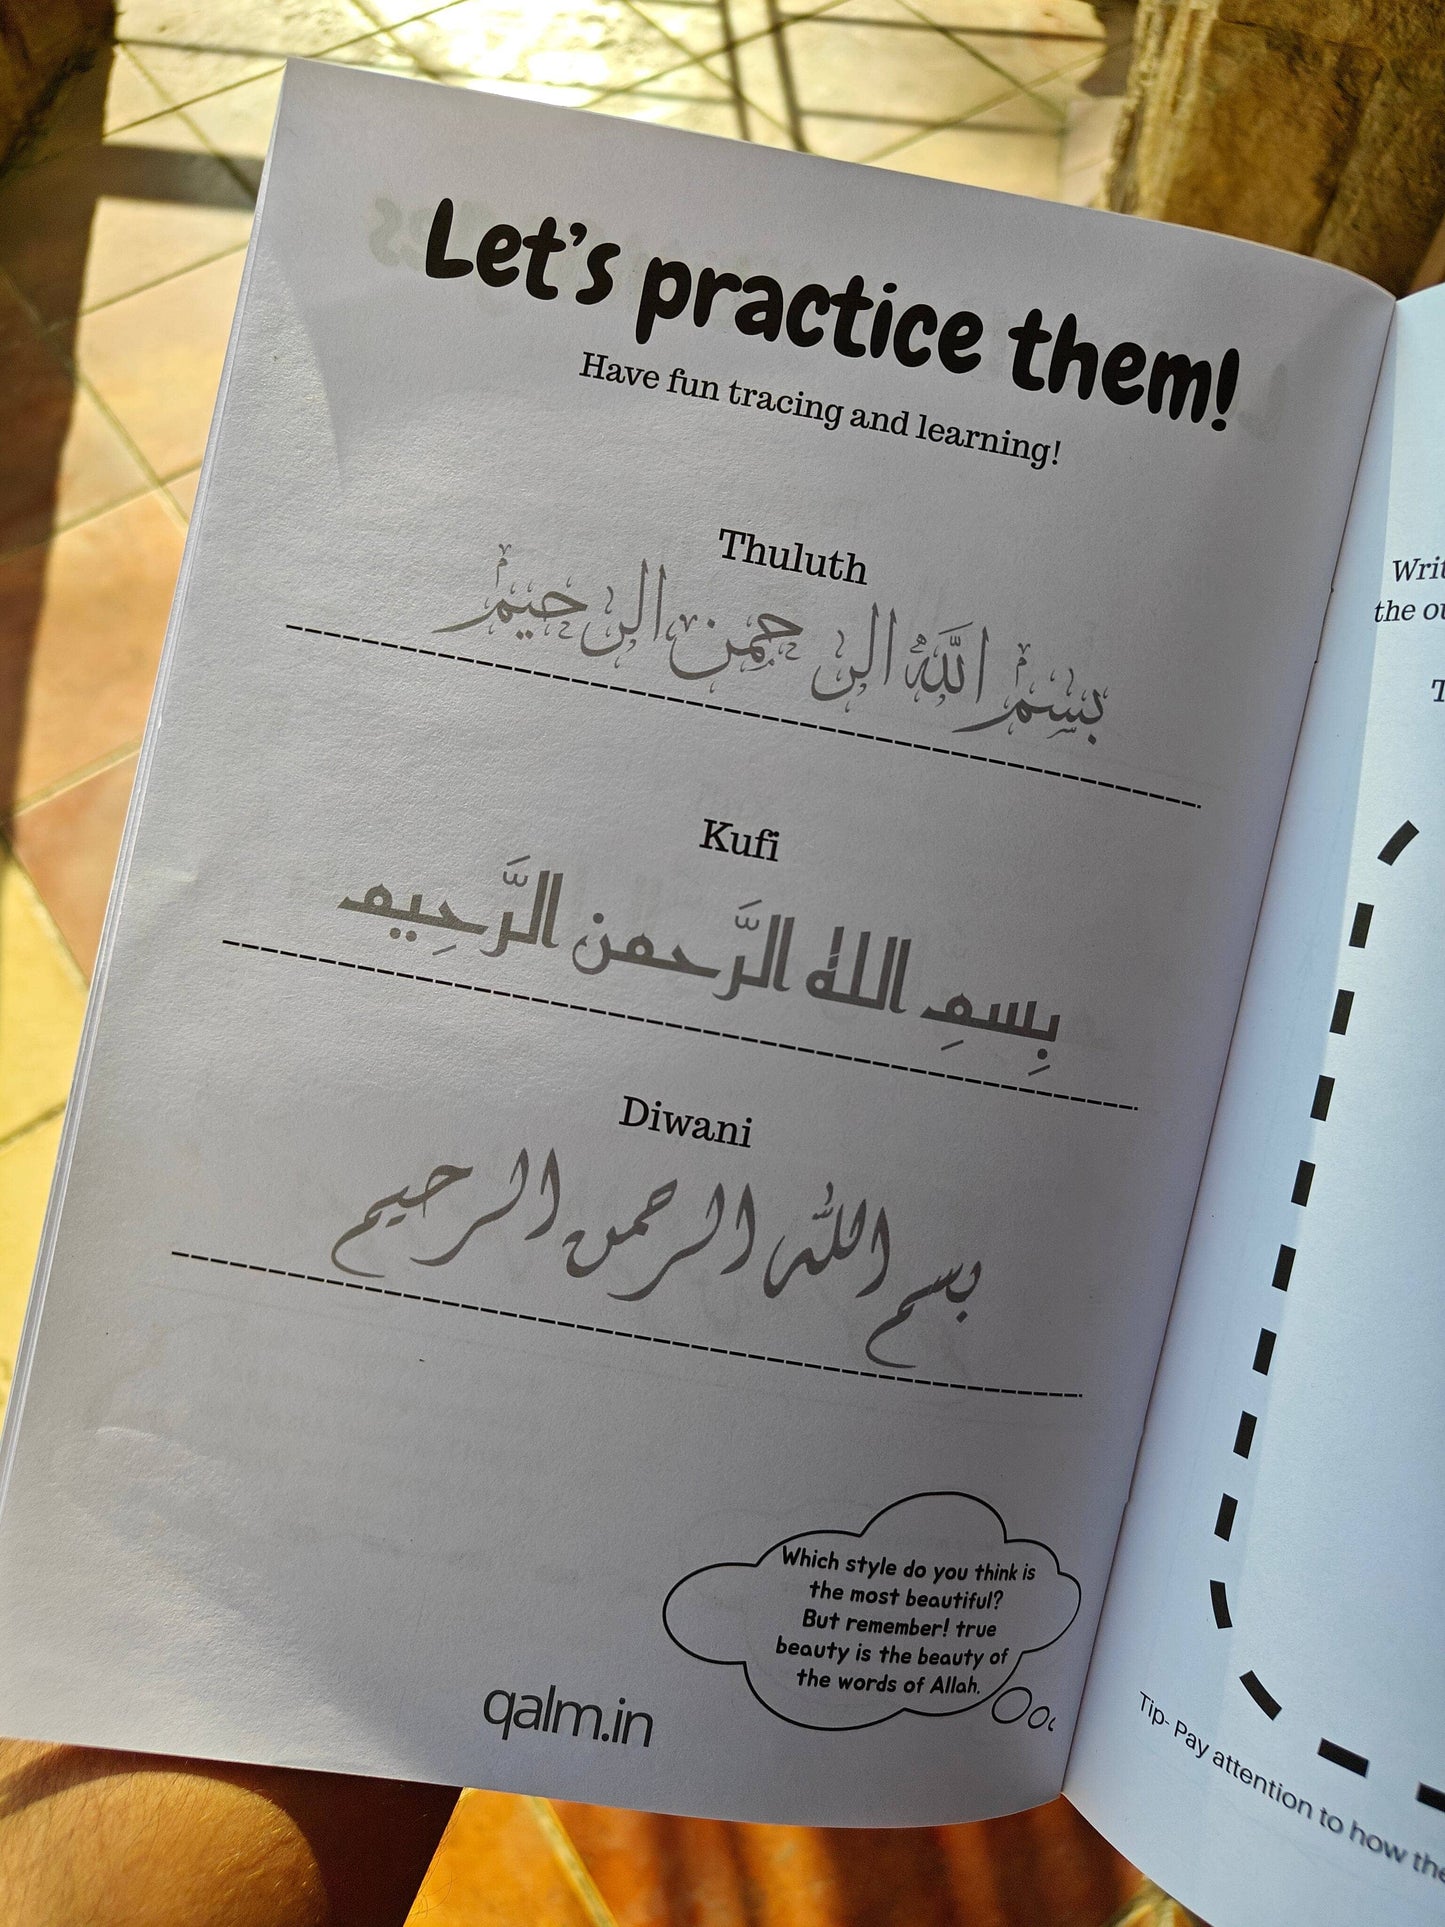 Let's practice them!
Have fun tracing and learning!
Thuluth
بسم الله الرحمن الرحيم
Kufi
بِسمِ اللهُ الرَّحمن الرَّحِيم
Diwani
بسم الله الرحمن الرحيم
Which style do you think is
the most beautiful?
But remember! true
beauty is the beauty of
the words of Allah.
qalm.in
the
Tip- Pay attention to how